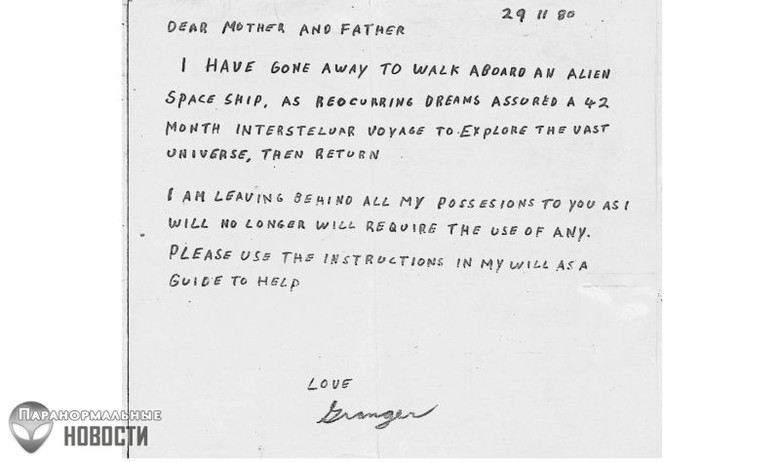 29 11 80
DEAR MOTHER AND FATHER
I HAVE GONE AWAY TO WALK ABOARD AN ALIEN
SPACE SHIP, AS REOCURRING DREAMS ASSURED A 42
MONTH INTERSTELLAR VOYAGE TO EXPLORE THE VAST
UNIVERSE, THEN RETURN
I AM LEAVING BEHIND ALL MY POSSESIONS TO YOU AS I
WILL NO LONGER WILL REQUIRE THE USE OF ANY.
PLEASE USE THE INSTRUCTIONS IN MY WILL AS A
GUIDE TO HELP
LOVE
Granger
Паранормальные
НОВОСТИ